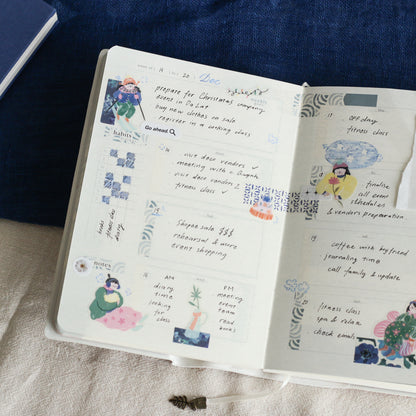 14
20
Dec
prepare for Christmas camping
event in Da Lat
buy new clothes on sale
register in a working class
Go ahead
habits
visit decor vendors
meeting with c. Quynh
visit decor vendors 2
fitness class
books
diary
Shopee sale $$$
rehearsal & more
event shopping
notes
16
AM
diary
time
looking
for
class
PM
meeting
event
team
read
books
off day
fitness class
finalise
call event
schedules
& vendors preparation
19
coffee with boyfriend
journaling time
call family & update
fitness class
spa & relax
check emails